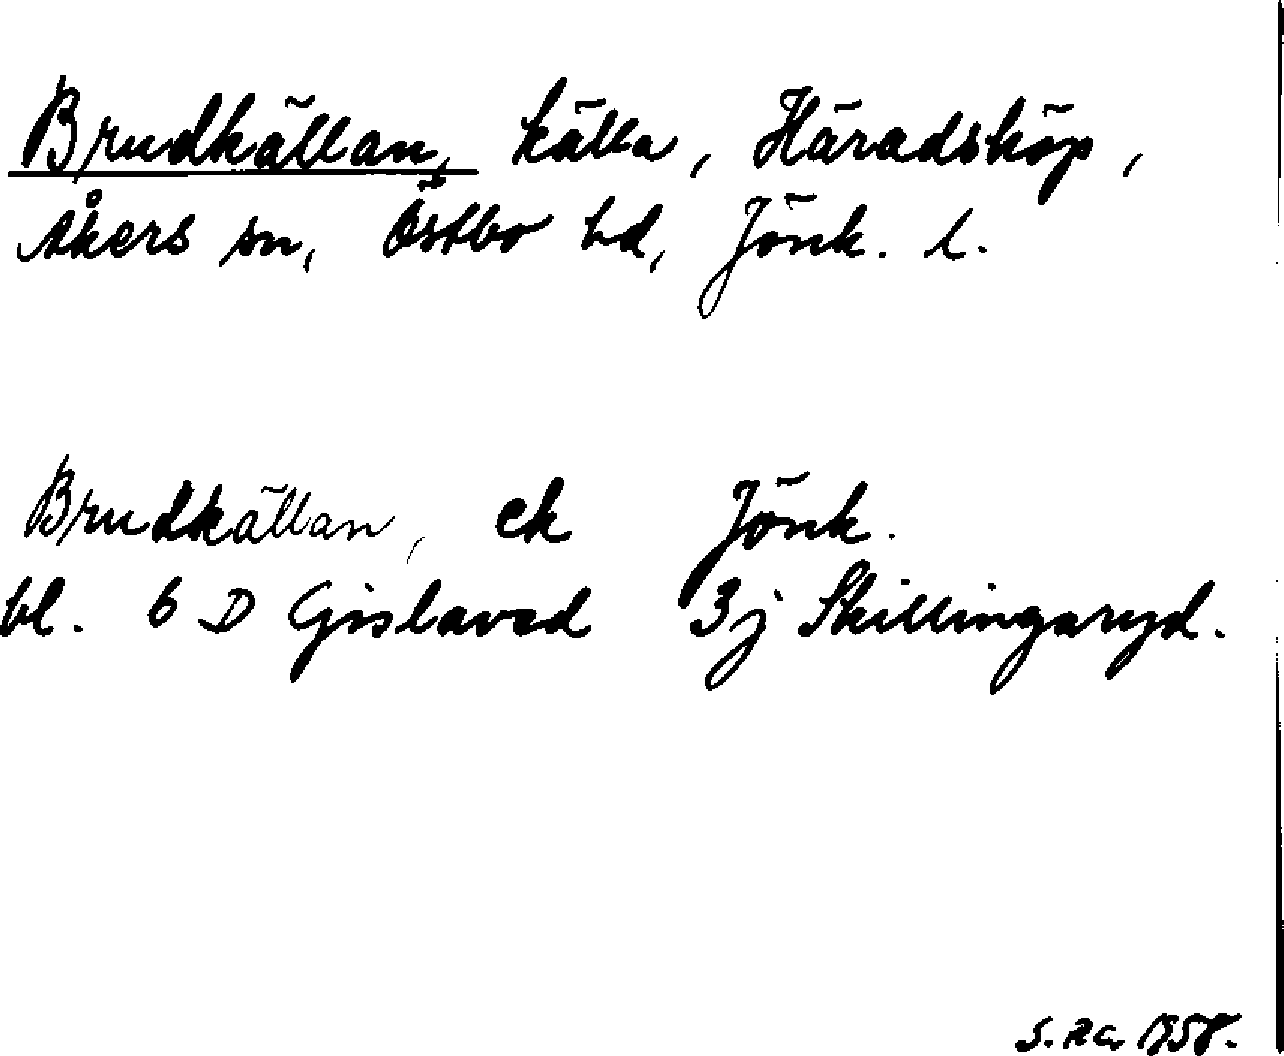 Brudkällan, källa, Häradsköp,
Åkers sn, Östbo hd, Jönk. l.
Brudkällan, ek Jönk.
bl. 6 D Gislaved 3j Skillingaryd.
S. RG. 1958.